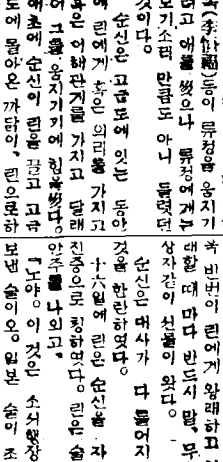 등이 류정을 움지기
려고 애를 썼으나 류정에게는
모기소리 만큼도 아니 들렷던
것이다。
순신은 고금도에 잇는 동안
에 린에게 혹은 의리를 가지고
혹은 이해관계를 가지고 달래
어 그를 움지기기에 힘을썻다。
애초에 순신이 린을 끌고 고금
도에 몰아온 까닭이, 린으로하
린에게 왕래하고
때마다 반드시 말, 무
상자같이 선물이 왓다。
순신은 대사가 다 틀어지
것을 한탄하엿다。
十六일에 린은 순신을 자
진중으로 청하엿다。 린은 술
안주를 나외고。
「노야。 이것은 소서行長
보낸 술이오。 일본 술이 조